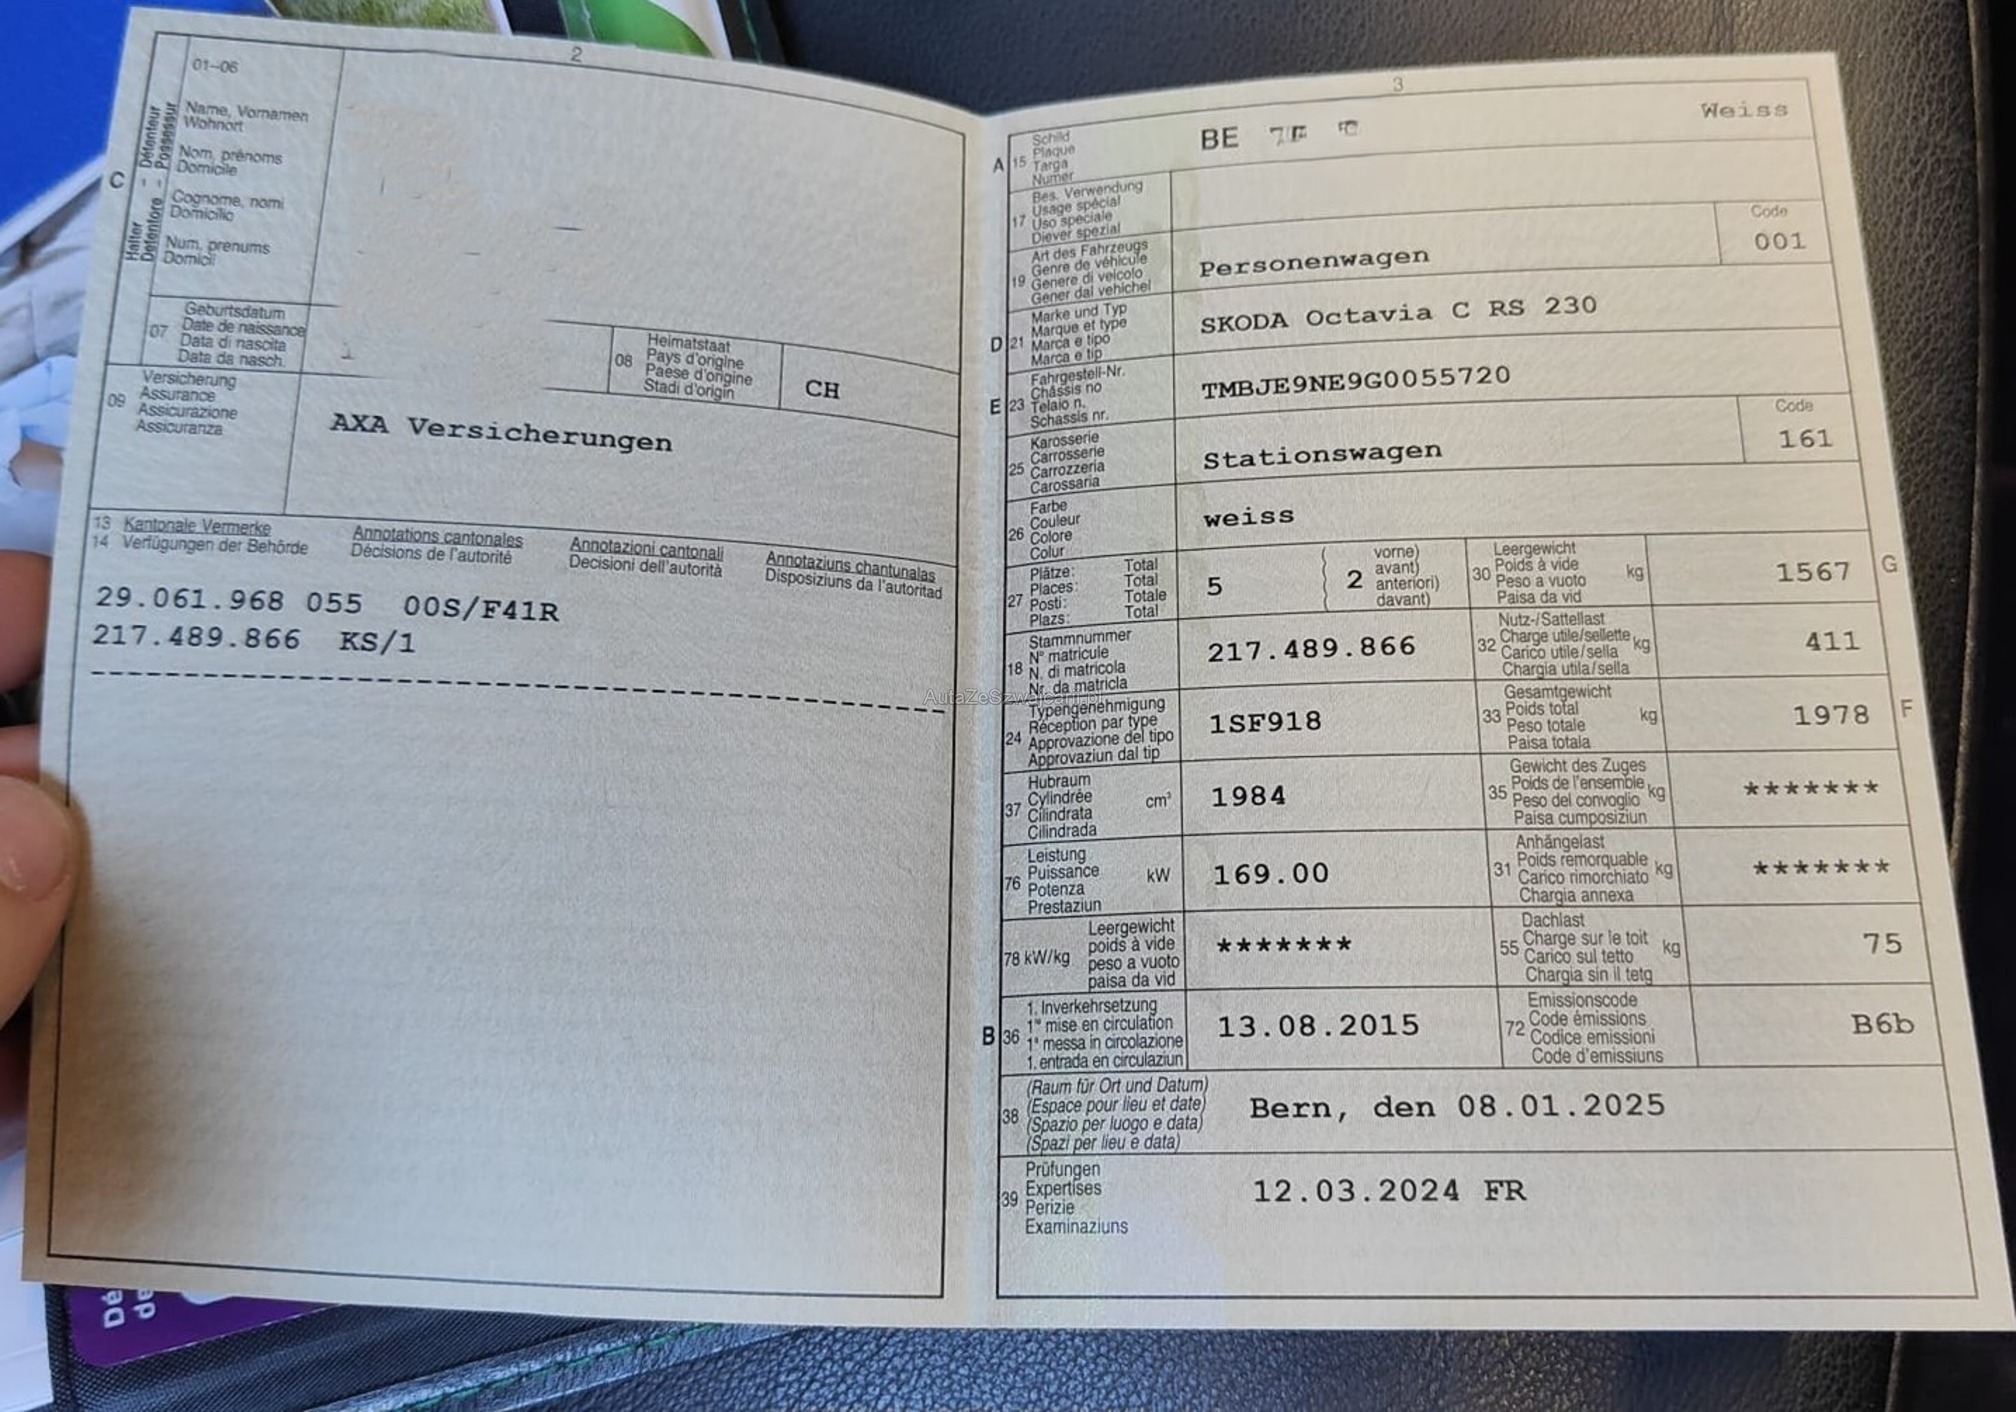 2
01–06
Halter – Détenteur
Detentore – Possessur
C
Name, Vornamen
Wohnort
Nom, prénoms
Domicile
Cognome, nomi
Domicilio
Num, prenums
Domicil
07
Geburtsdatum
Date de naissance
Data di nascita
Data da nasch.
08
Heimatstaat
Pays d'origine
Paese d'origine
Stadi d'origin
CH
09
Versicherung
Assurance
Assicurazione
Assicuranza
AXA Versicherungen
13 Kantonale Vermerke Annotations cantonales Annotazioni cantonali Annotaziuns chantunalas
14 Verfügungen der Behörde Décisions de l'autorité Decisioni dell'autorità Disposiziuns da l'autoritad
29.061.968 055 00S/F41R
217.489.866 KS/1
3
A 15
Schild
Plaque
Targa
Numer
BE
Weiss
17
Bes. Verwendung
Usage spécial
Uso speciale
Diever spezial
19
Art des Fahrzeugs
Genre de véhicule
Genere di veicolo
Gener dal vehichel
Personenwagen
Code
001
D 21
Marke und Typ
Marque et type
Marca e tipo
Marca e tip
SKODA Octavia C RS 230
E 23
Fahrgestell-Nr.
Châssis no
Telaio n.
Schassis nr.
TMBJE9NE9G0055720
25
Karosserie
Carrosserie
Carrozzeria
Carossaria
Stationswagen
Code
161
26
Farbe
Couleur
Colore
Colur
weiss
27
Plätze: Total
Places: Total
Posti: Totale
Plazs: Total
5
2
(vorne)
avant)
anteriori)
davant)
30
Leergewicht
Poids à vide
Peso a vuoto
Paisa da vid
kg
1567
G
18
Stammnummer
N° matricule
N. di matricola
Nr. da matricla
217.489.866
32
Nutz-/Sattellast
Charge utile/sellette
Carico utile/sella
Chargia utila/sella
kg
411
24
Typengenehmigung
Réception par type
Approvazione del tipo
Approvaziun dal tip
1SF918
33
Gesamtgewicht
Poids total
Peso totale
Paisa totala
kg
1978
F
37
Hubraum
Cylindrée
Cilindrata
Cilindrada
cm³
1984
35
Gewicht des Zuges
Poids de l'ensemble
Peso del convoglio
Paisa cumposiziun
kg
*******
76
Leistung
Puissance
Potenza
Prestaziun
kW
169.00
31
Anhängelast
Poids remorquable
Carico rimorchiato
Chargia annexa
kg
*******
78 kW/kg
Leergewicht
poids à vide
peso a vuoto
paisa da vid
*******
55
Dachlast
Charge sur le toit
Carico sul tetto
Chargia sin il tetg
kg
75
B 36
1. Inverkehrsetzung
1re mise en circulation
1a messa in circolazione
1. entrada en circulaziun
13.08.2015
72
Emissionscode
Code émissions
Codice emissioni
Code d'emissiuns
B6b
38
(Raum für Ort und Datum)
(Espace pour lieu et date)
(Spazio per luogo e data)
(Spazi per lieu e data)
Bern, den 08.01.2025
39
Prüfungen
Expertises
Perizie
Examinaziuns
12.03.2024 FR